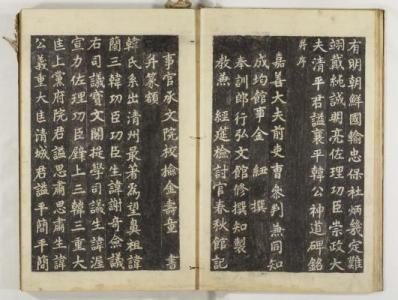 有明朝鮮國輸忠保社炳幾定難
翊戴純誠明亮佐理功臣崇政大
夫清平君謚襄平韓公神道碑銘
并序
嘉善大夫前吏曹參判兼同知
成均館事金 紐 撰
奉訓郎行弘文館修撰知製
教兼 經筵檢討官春秋館記
事官承文院校檢金壽童 書
并篆額
韓氏系出清州最著為望鼻祖諱
蘭三韓功臣功臣生諱謝奇僉議
右司議寶文閣提學司議生諱渥
宣力佐理功臣上三韓三重大
匡上黨府院君謚思肅思肅生諱
公義重大匡清城君謚平簡平簡